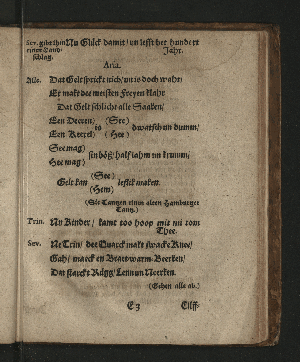 Sev. gibt ihm einen Land-schlag. Nu Glück damit / un lefft her hundert Jahr.
Aria.
Alle. Dat Gelt sprickt nich / un is doch wahr /
Et makt dee meisten Freyen klahr
Dat Gelt schlicht alle Saaken /
Een Deeren / (See)
is dwatsch un dumm /
Een Keerel (Hee)
See mag
sin böß / half lahm un krumm /
Hee mag
(See)
Gelt kan leflik maken.
(Hem)
(Sie Tantzen einen alten Hamburger Tantz.)
Trin. Nu Kinder / kamt too hoop mit nu tom Thee.
Sev. Ne Trin / dee Quarck makt swacke Knee /
Gah / maeck en Braut warm-Beerken /
Dat starckt Rügg / Lenn un Neerken.
(Gehen alle ab.)
E 3 Eilff-